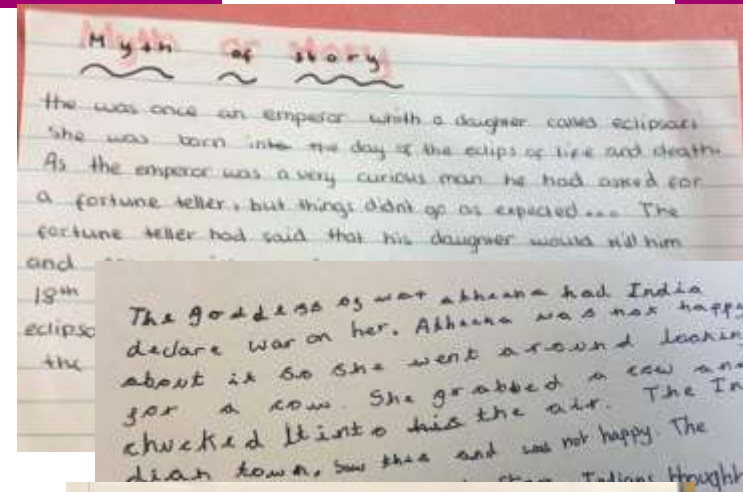 Myth of story
the was once an emperor whith a daughter called eclipsae
She was born into the day of the eclips of life and death.
As the emperor was a very curious man he had asked for
a fortune teller, but things didnt go as expected... The
fortune teller had said that his daughter would kill him
and
18th
eclipsa
the
The goddess of war atheana had India
declare war on her. Atheana was not happy
about it so she went around lookin
for a cow. She grabbed a cow an
chucked it into the air. The In
dian town, saw this and was not happy. The
Indians thought